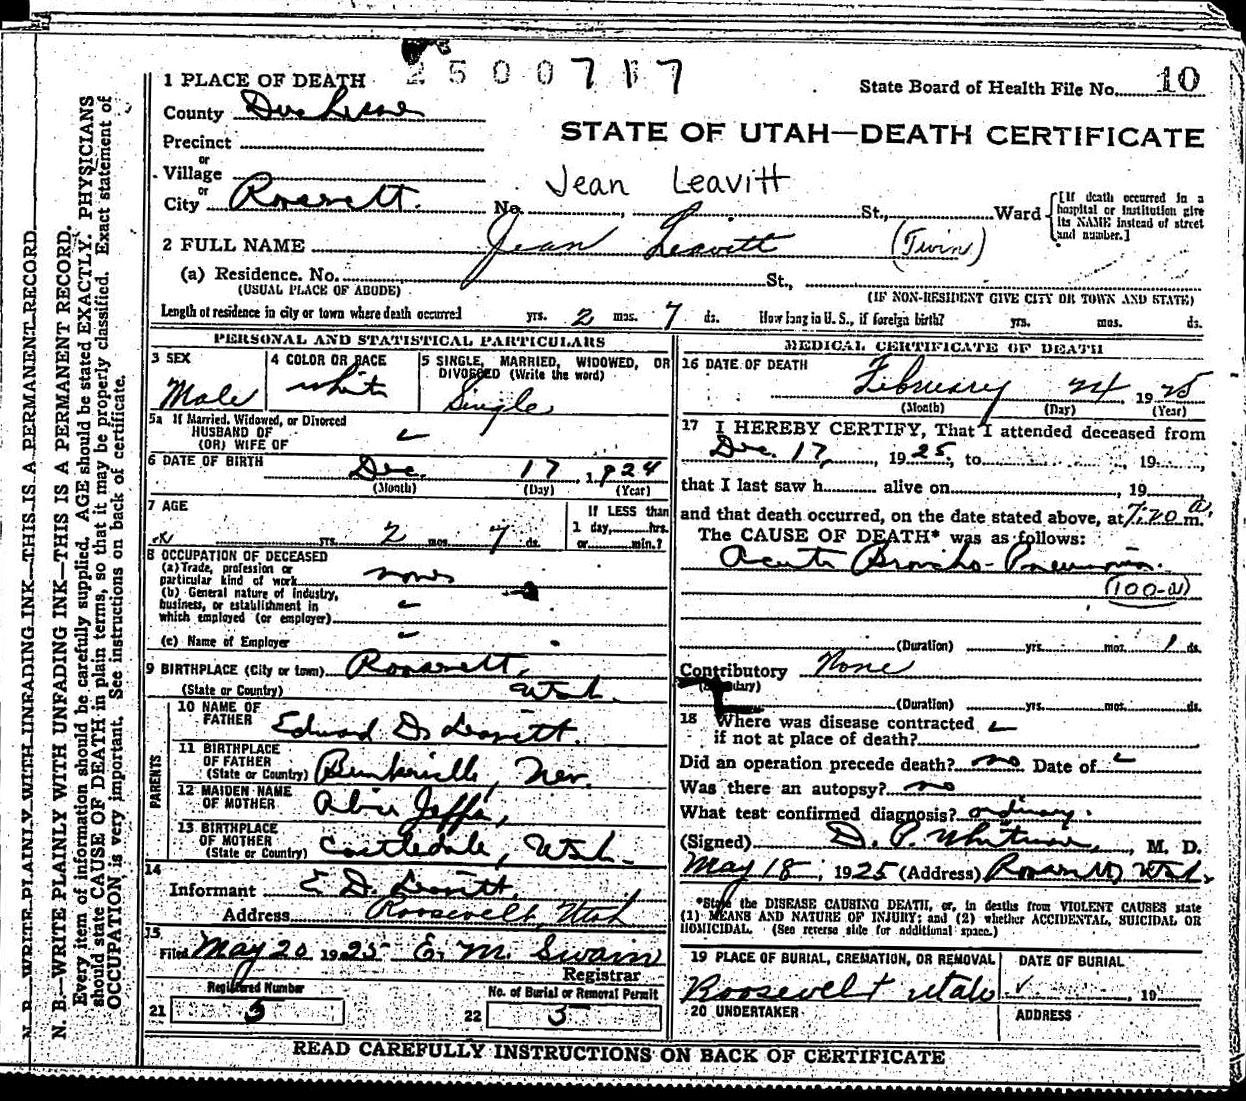 2500717
1 PLACE OF DEATH
State Board of Health File No. 10
County Duchesne
STATE OF UTAH—DEATH CERTIFICATE
Precinct
or
Village
Jean Leavitt
or
City Roosevelt. No. St., Ward
[If death occurred in a hospital or institution give its NAME instead of street and number.]
2 FULL NAME Jean Leavitt (Twin)
(a) Residence. No. St.,
(USUAL PLACE OF ABODE) (IF NON-RESIDENT GIVE CITY OR TOWN AND STATE)
Length of residence in city or town where death occurred yrs. 2 mos. 7 ds. How long in U. S., if foreign birth? yrs. mos. ds.
PERSONAL AND STATISTICAL PARTICULARS
3 SEX
Male
4 COLOR OR RACE
white
5 SINGLE, MARRIED, WIDOWED, OR DIVORCED (Write the word)
Single
5a If Married, Widowed, or Divorced
HUSBAND OF
(OR) WIFE OF
6 DATE OF BIRTH Dec. 17, 1924
(Month) (Day) (Year)
7 AGE
yrs. 2 mos. 7 ds.
If LESS than
1 day, hrs.
or min.?
8 OCCUPATION OF DECEASED
(a) Trade, profession or
particular kind of work none
(b) General nature of industry,
business, or establishment in
which employed (or employer)
(c) Name of Employer
9 BIRTHPLACE (City or town) Roosevelt,
(State or Country) Utah.
PARENTS
10 NAME OF
FATHER Edward D. Leavitt.
11 BIRTHPLACE
OF FATHER
(State or Country) Bunkerville, Nev.
12 MAIDEN NAME
OF MOTHER
13 BIRTHPLACE
OF MOTHER
(State or Country) Castledale, Utah.
14
Informant E. D. Leavitt
Address Roosevelt, Utah
15
Filed May 20 1925 E. M. Swain
Registrar
Registered Number
21 5
No. of Burial or Removal Permit
22 5
MEDICAL CERTIFICATE OF DEATH
16 DATE OF DEATH
February 24 1925
(Month) (Day) (Year)
17 I HEREBY CERTIFY, That I attended deceased from
Dec. 17, 1925, to , 19 ,
that I last saw h alive on , 19
and that death occurred, on the date stated above, at 7:20 a. m.
The CAUSE OF DEATH* was as follows:
Acute Broncho-Pneumonia.
(100-a)
(Duration) yrs. mos. 1 ds.
Contributory None
(Secondary)
(Duration) yrs. mos. ds.
18 Where was disease contracted
if not at place of death?
Did an operation precede death? no Date of
Was there an autopsy? no
What test confirmed diagnosis? ordinary.
(Signed) D. P. Whitmore, M. D.
May 18, 1925 (Address) Roosevelt, Utah.
*State the DISEASE CAUSING DEATH, or, in deaths from VIOLENT CAUSES state
(1) MEANS AND NATURE OF INJURY; and (2) whether ACCIDENTAL, SUICIDAL OR
HOMICIDAL. (See reverse side for additional space.)
19 PLACE OF BURIAL, CREMATION, OR REMOVAL
Roosevelt Utah
DATE OF BURIAL
, 19
20 UNDERTAKER
ADDRESS
READ CAREFULLY INSTRUCTIONS ON BACK OF CERTIFICATE
N. B.—WRITE PLAINLY WITH UNFADING INK—THIS IS A PERMANENT RECORD.
N. B.—WRITE PLAINLY WITH UNFADING INK—THIS IS A PERMANENT RECORD.
Every item of information should be carefully supplied. AGE should be stated EXACTLY. PHYSICIANS
should state CAUSE OF DEATH in plain terms, so that it may be properly classified. Exact statement of
OCCUPATION is very important. See instructions on back of certificate.